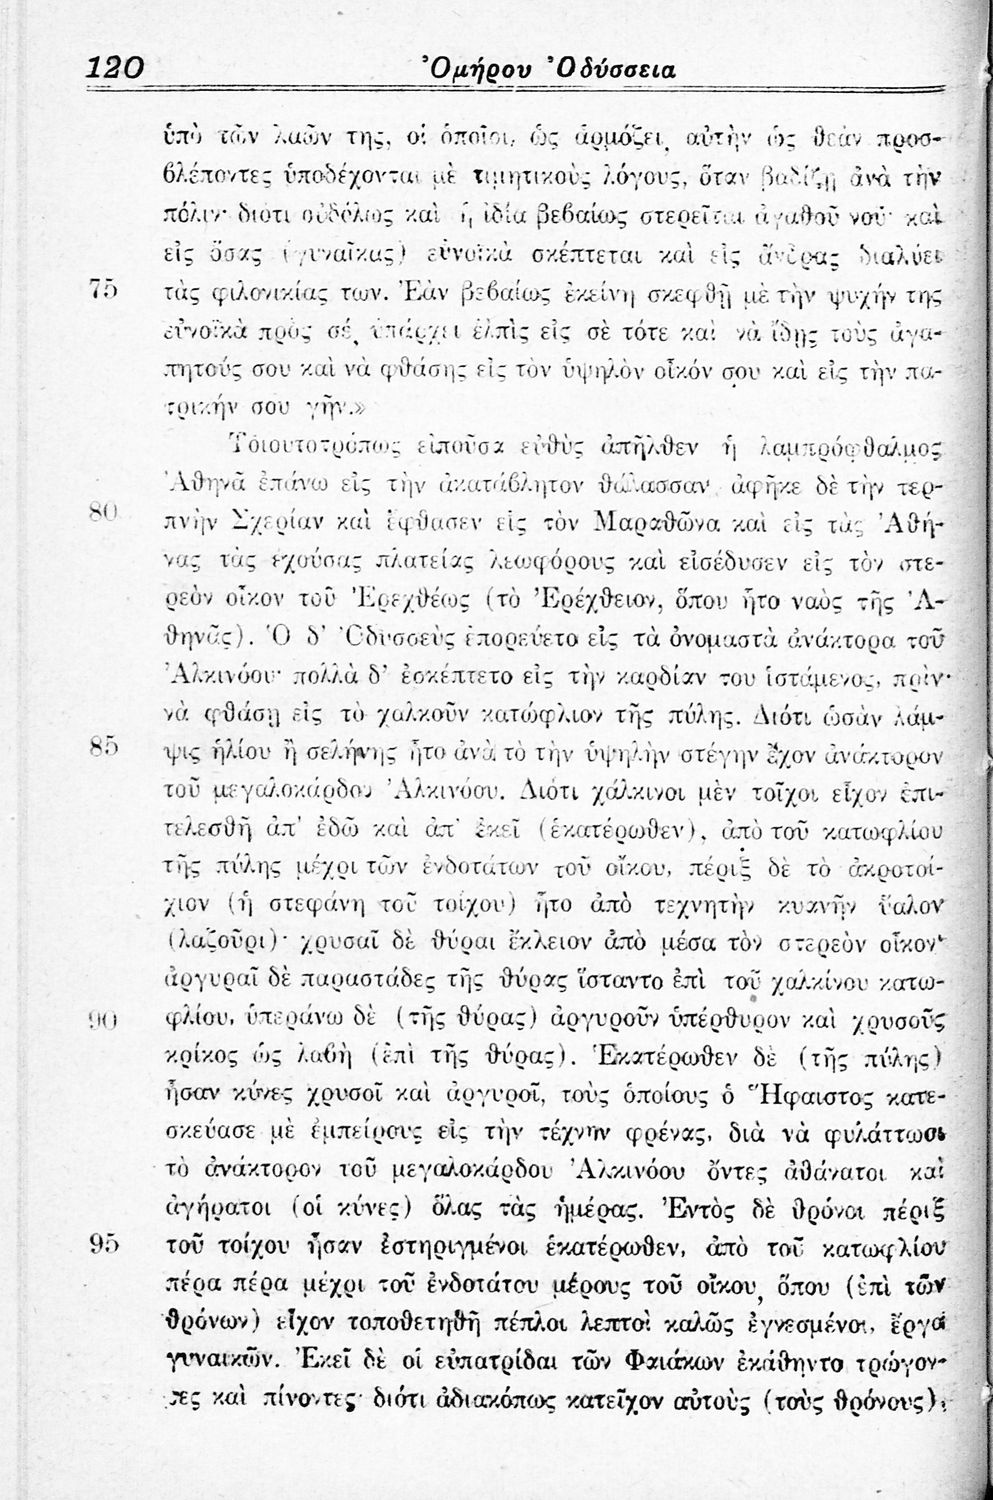 120 Ὁμήρου Ὀδύσσεια
ὑπὸ τῶν λαῶν της, οἱ ὁποῖοι, ὡς ἁρμόζει, αὐτὴν ὡς θεὰν προσ-
βλέποντες ὑποδέχονται μὲ τιμητικοὺς λόγους, ὅταν βαδίζῃ ἀνὰ τὴν
πόλιν· διότι οὐδόλως καὶ ἡ ἰδία βεβαίως στερεῖται ἀγαθοῦ νοῦ· καὶ
εἰς ὅσας (γυναῖκας) εὐνοϊκὰ σκέπτεται καὶ εἰς ἄνδρας διαλύει
75 τὰς φιλονικίας των. Ἐὰν βεβαίως ἐκείνη σκεφθῇ μὲ τὴν ψυχήν της
εὐνοϊκὰ πρὸς σέ, ὑπάρχει ἐλπὶς εἰς σὲ τότε καὶ νὰ ἴδῃς τοὺς ἀγα-
πητούς σου καὶ νὰ φθάσῃς εἰς τὸν ὑψηλὸν οἶκόν σου καὶ εἰς τὴν πα-
τρικήν σου γῆν.»
Τοιουτοτρόπως εἰποῦσα εὐθὺς ἀπῆλθεν ἡ λαμπρόφθαλμος
Ἀθηνᾶ ἐπάνω εἰς τὴν ἀκατάβλητον θάλασσαν, ἀφῆκε δὲ τὴν τερ-
80 πνὴν Σχερίαν καὶ ἔφθασεν εἰς τὸν Μαραθῶνα καὶ εἰς τὰς Ἀθή-
νας τὰς ἐχούσας πλατείας λεωφόρους καὶ εἰσέδυσεν εἰς τὸν στε-
ρεὸν οἶκον τοῦ Ἐρεχθέως (τὸ Ἐρέχθειον, ὅπου ἦτο ναὸς τῆς Ἀ-
θηνᾶς). Ὁ δ' Ὀδυσσεὺς ἐπορεύετο εἰς τὰ ὀνομαστὰ ἀνάκτορα τοῦ
Ἀλκινόου· πολλὰ δ' ἐσκέπτετο εἰς τὴν καρδίαν του ἱστάμενος, πρὶν
νὰ φθάσῃ εἰς τὸ χαλκοῦν κατώφλιον τῆς πύλης. Διότι ὡσὰν λάμ-
85 ψις ἡλίου ἢ σελήνης ἦτο ἀνὰ τὸ τὴν ὑψηλὴν στέγην ἔχον ἀνάκτορον
τοῦ μεγαλοκάρδου Ἀλκινόου. Διότι χάλκινοι μὲν τοῖχοι εἶχον ἐπι-
τελεσθῆ ἀπ' ἐδῶ καὶ ἀπ' ἐκεῖ (ἑκατέρωθεν), ἀπὸ τοῦ κατωφλίου
τῆς πύλης μέχρι τῶν ἐνδοτάτων τοῦ οἴκου, πέριξ δὲ τὸ ἀκροτοί-
χιον (ἡ στεφάνη τοῦ τοίχου) ἦτο ἀπὸ τεχνητὴν κυανῆν ὕαλον
(λαζοῦρι)· χρυσαῖ δὲ θύραι ἔκλειον ἀπὸ μέσα τὸν στερεὸν οἶκον·
ἀργυραῖ δὲ παραστάδες τῆς θύρας ἵσταντο ἐπὶ τοῦ χαλκίνου κατω-
90 φλίου, ὑπεράνω δὲ (τῆς θύρας) ἀργυροῦν ὑπέρθυρον καὶ χρυσοῦς
κρίκος ὡς λαβὴ (ἐπὶ τῆς θύρας). Ἑκατέρωθεν δὲ (τῆς πύλης)
ἦσαν κύνες χρυσοῖ καὶ ἀργυροῖ, τοὺς ὁποίους ὁ Ἥφαιστος κατε-
σκεύασε μὲ ἐμπείρους εἰς τὴν τέχνην φρένας, διὰ νὰ φυλάττωσι
τὸ ἀνάκτορον τοῦ μεγαλοκάρδου Ἀλκινόου ὄντες ἀθάνατοι καὶ
ἀγήρατοι (οἱ κύνες) ὅλας τὰς ἡμέρας. Ἐντὸς δὲ θρόνοι πέριξ
95 τοῦ τοίχου ἦσαν ἐστηριγμένοι ἑκατέρωθεν, ἀπὸ τοῦ κατωφλίου
πέρα πέρα μέχρι τοῦ ἐνδοτάτου μέρους τοῦ οἴκου, ὅπου (ἐπὶ τῶν
θρόνων) εἶχον τοποθετηθῆ πέπλοι λεπτοὶ καλῶς ἐγνεσμένοι, ἔργα
γυναικῶν. Ἐκεῖ δὲ οἱ εὐπατρίδαι τῶν Φαιάκων ἐκάθηντο τρώγον-
τες καὶ πίνοντες· διότι ἀδιακόπως κατεῖχον αὐτοὺς (τοὺς θρόνους).